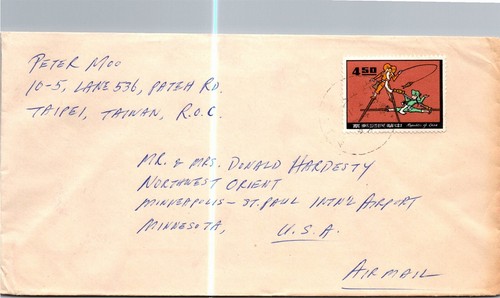 PETER MOO
10-5, LANE 536, PATEH RD.
TAIPEI, TAIWAN, R.O.C.
4.50
Republic of China
MR. & MRS. DONALD HARDESTY
NORTHWEST ORIENT
MINNEAPOLIS - ST. PAUL INTN'L AIRPORT
MINNESOTA, U.S.A.
AIRMAIL